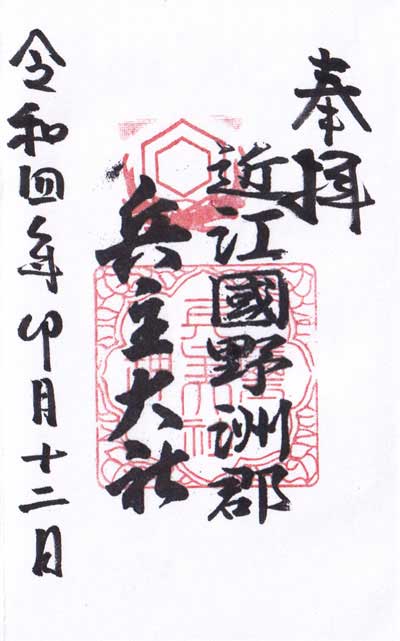 奉拝
近江國野洲郡
兵主大社
令和四年卯月十二日